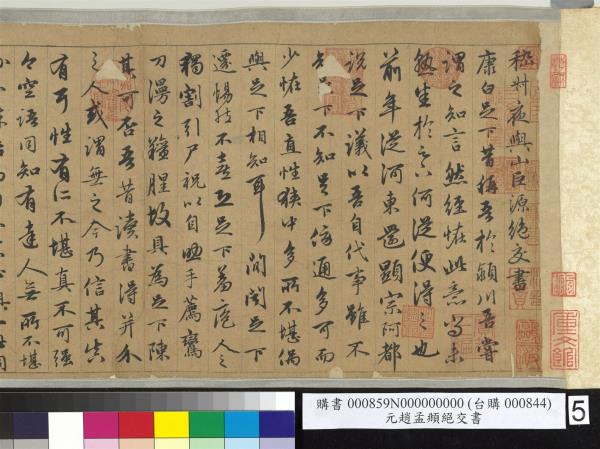 嵇叔夜與山巨源絕交書
康白足下昔稱吾於潁川吾嘗
謂之知言然經恠此意尚未
熟 於 何從便得之也
前年從河東還顯宗阿都
說足下議以吾自代事雖不
知足下不知足下傍通多可而
少恠吾直性狹中多所不堪偶
與足下相知耳 間聞足下
遷惕然不喜恐足下羞庖人之
獨割引尸祝以自助手薦鸞
刀漫之羶腥故具為足下陳
其可否吾昔讀書得并介
之人或謂無之今乃信其真
有耳性有 不堪真不可強
今空語同知有達人無所不堪
購書 000859N000000000 (台購 000844)
元趙孟頫絕交書
5